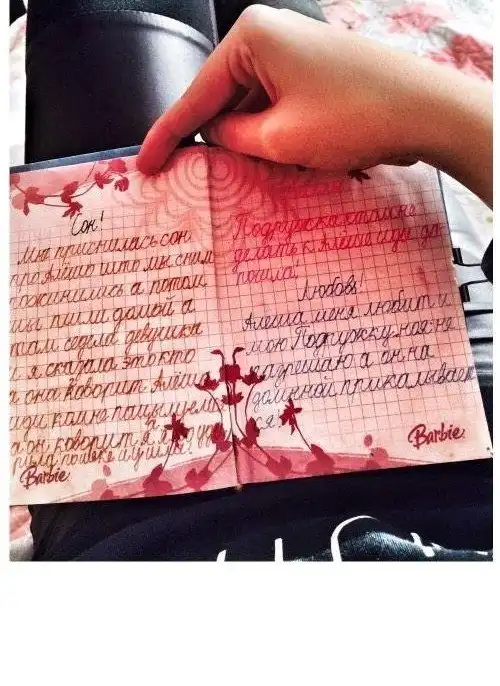 Сон!
Мне приснилась сон
про Алёшо што мы с ним
поженились а потом
мы пшли домой а
там седела девушка
и я сказала это кто
а она коворит Алёша
иди ко мне
а он коворит я
Barbie
Подружка
делать к Алёше иди да
пошла!
Любовь
Алёша меня любит и
мою Подружку ноя не
разрешаю а он на
до мной прикалывает
ся.
Barbie